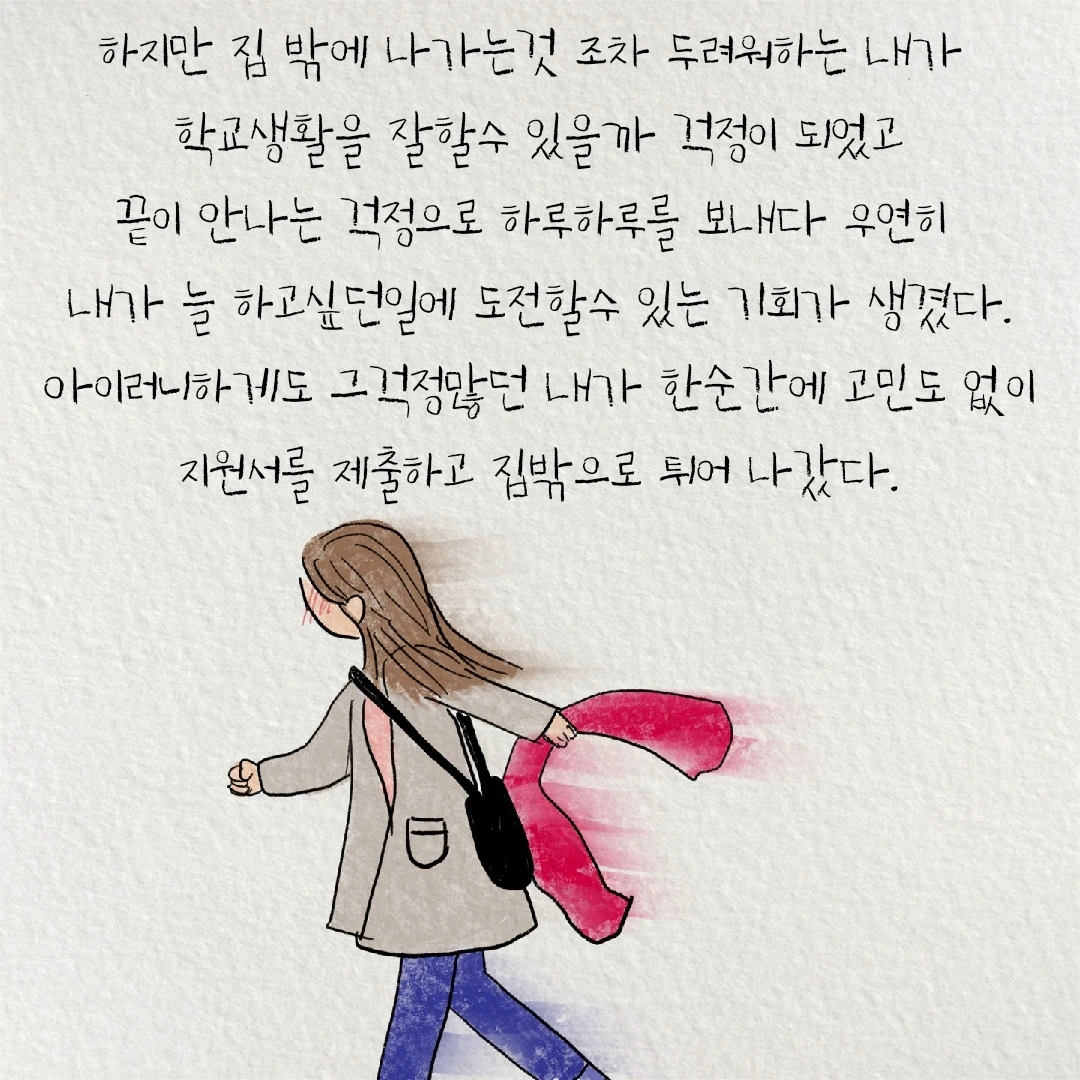 하지만 집 밖에 나가는것 조차 두려워하는 내가
학교생활을 잘할수 있을까 걱정이 되었고
끝이 안나는 걱정으로 하루하루를 보내다 우연히
내가 늘 하고싶던일에 도전할수 있는 기회가 생겼다.
아이러니하게도 그걱정많던 내가 한순간에 고민도 없이
지원서를 제출하고 집밖으로 튀어 나갔다.